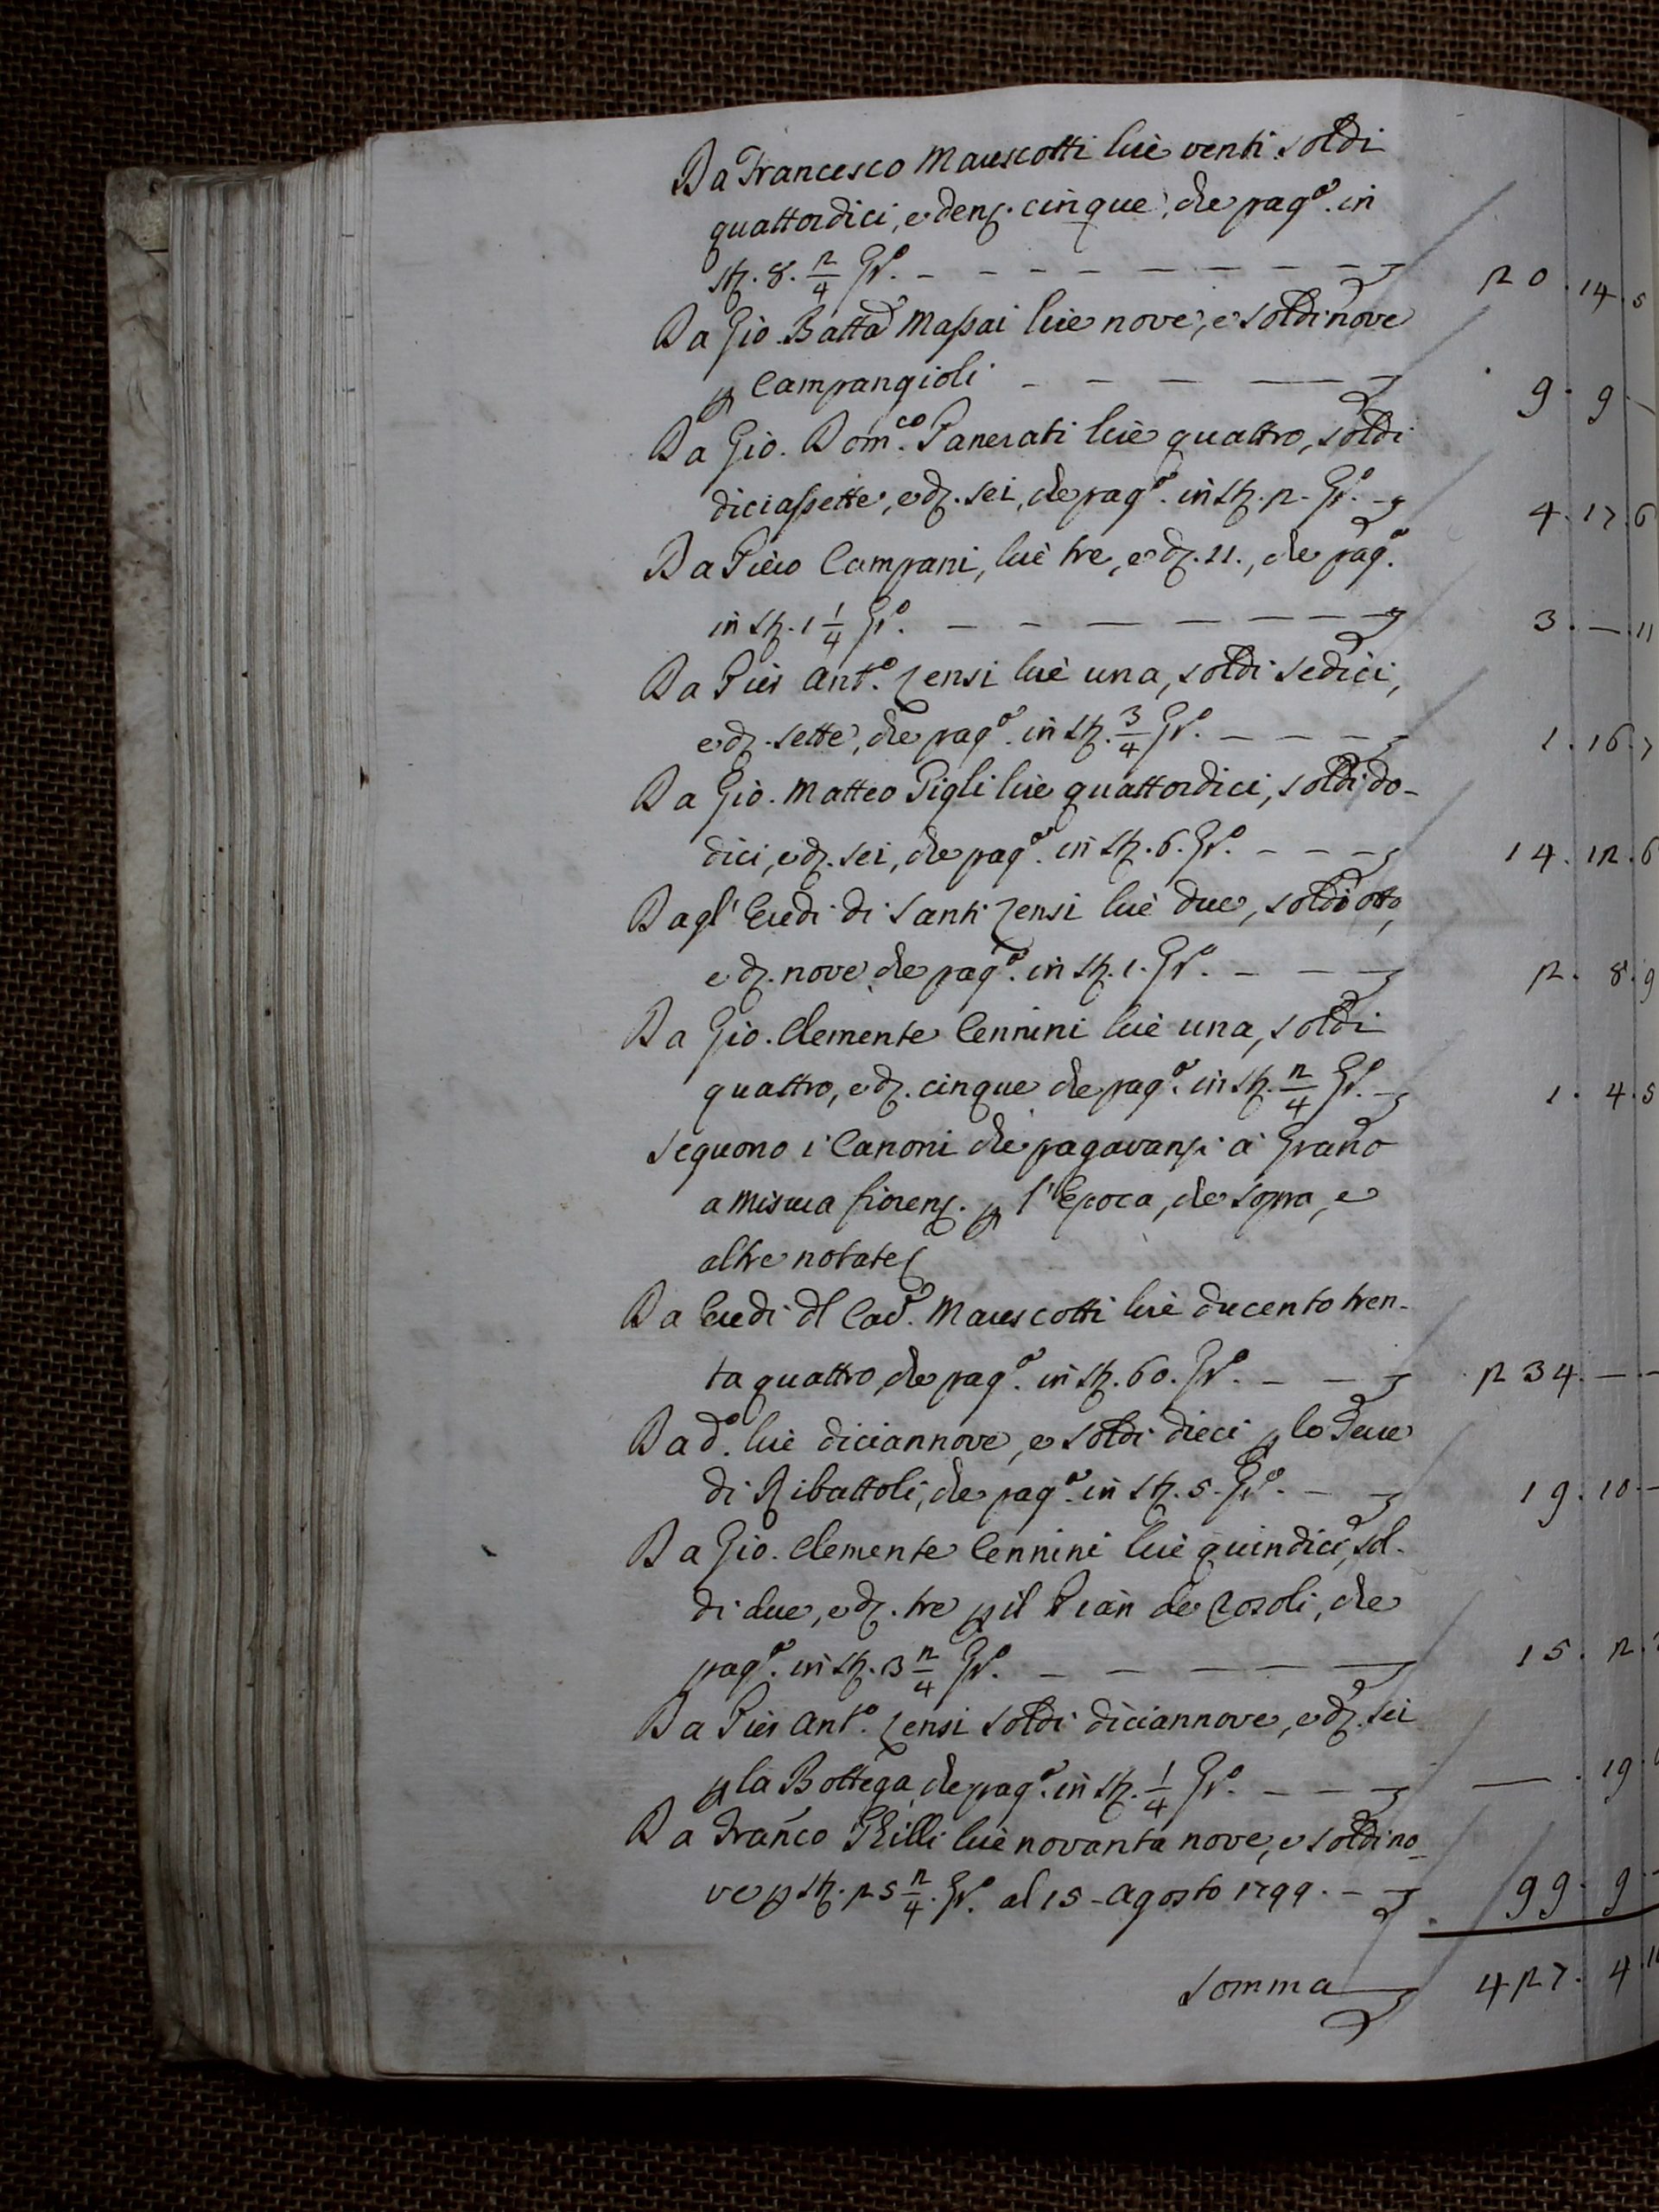 Da Francesco Marescotti lire venti soldi
quattordici, e denz. cinque, che pag.º in
stz. 8. 2/4 Gr.º — 20. 14. 5
Da Gio. Batta Massai lire nove, e soldi nove
p Campangioli — 9. 9. —
Da Gio. Dom.co Panerati lire quattro, soldi
diciassette, e dz. sei, che pag.º in stz. 2. Gr.º — 4. 17. 6
Da Piero Campani, lire tre, e dz. 11., che pag.º
in stz. 1 1/4 Gr.º — 3. —. 11
Da Pier Ant.º Zensi lire una, soldi sedici,
e dz. sette, che pag.º in stz. 3/4 Gr.º — 1. 16. 7
Da Gio. Matteo Pigli lire quattordici, soldi do-
dici, e dz. sei, che pag.º in stz. 6. Gr.º — 14. 12. 6
Dagl' Eredi di Santi Zensi lire due, soldi otto,
e dz. nove che pag.º in stz. 1. Gr.º — 2. 8. 9
Da Gio. Clemente Cennini lire una, soldi
quattro, e dz. cinque che pag.º in stz. 2/4 Gr.º — 1. 4. 5
Seguono i Canoni che pagavansi a Grano
a misura fiorenz. p l'Epoca, che sopra, e
altre notate
Da Eredi dl Cav.º Marescotti lire ducento tren-
ta quattro, che pag.º in stz. 60. Gr.º — 234. — —
Da d.º lire diciannove, e soldi dieci p le Terre
di Ribattoli, che pag.º in stz. 5. Gr.º — 19. 10. —
Da Gio. Clemente Cennini lire quindici, sol-
di due, e dz. tre p il Pian de Rosoli, che
pag.º in stz. 3 2/4 Gr.º — 15. 2.
Da Pier Ant.º Zensi soldi diciannove, e dz. sei
p la Bottega, che pag.º in stz. 1/4 Gr.º — —. 19.
Da Franco Ghilli lire novanta nove, e soldi no-
ve p stz. 25 2/4. Gr.º al 15. Agosto 1799. — 99. 9. —
Somma 427. 4.